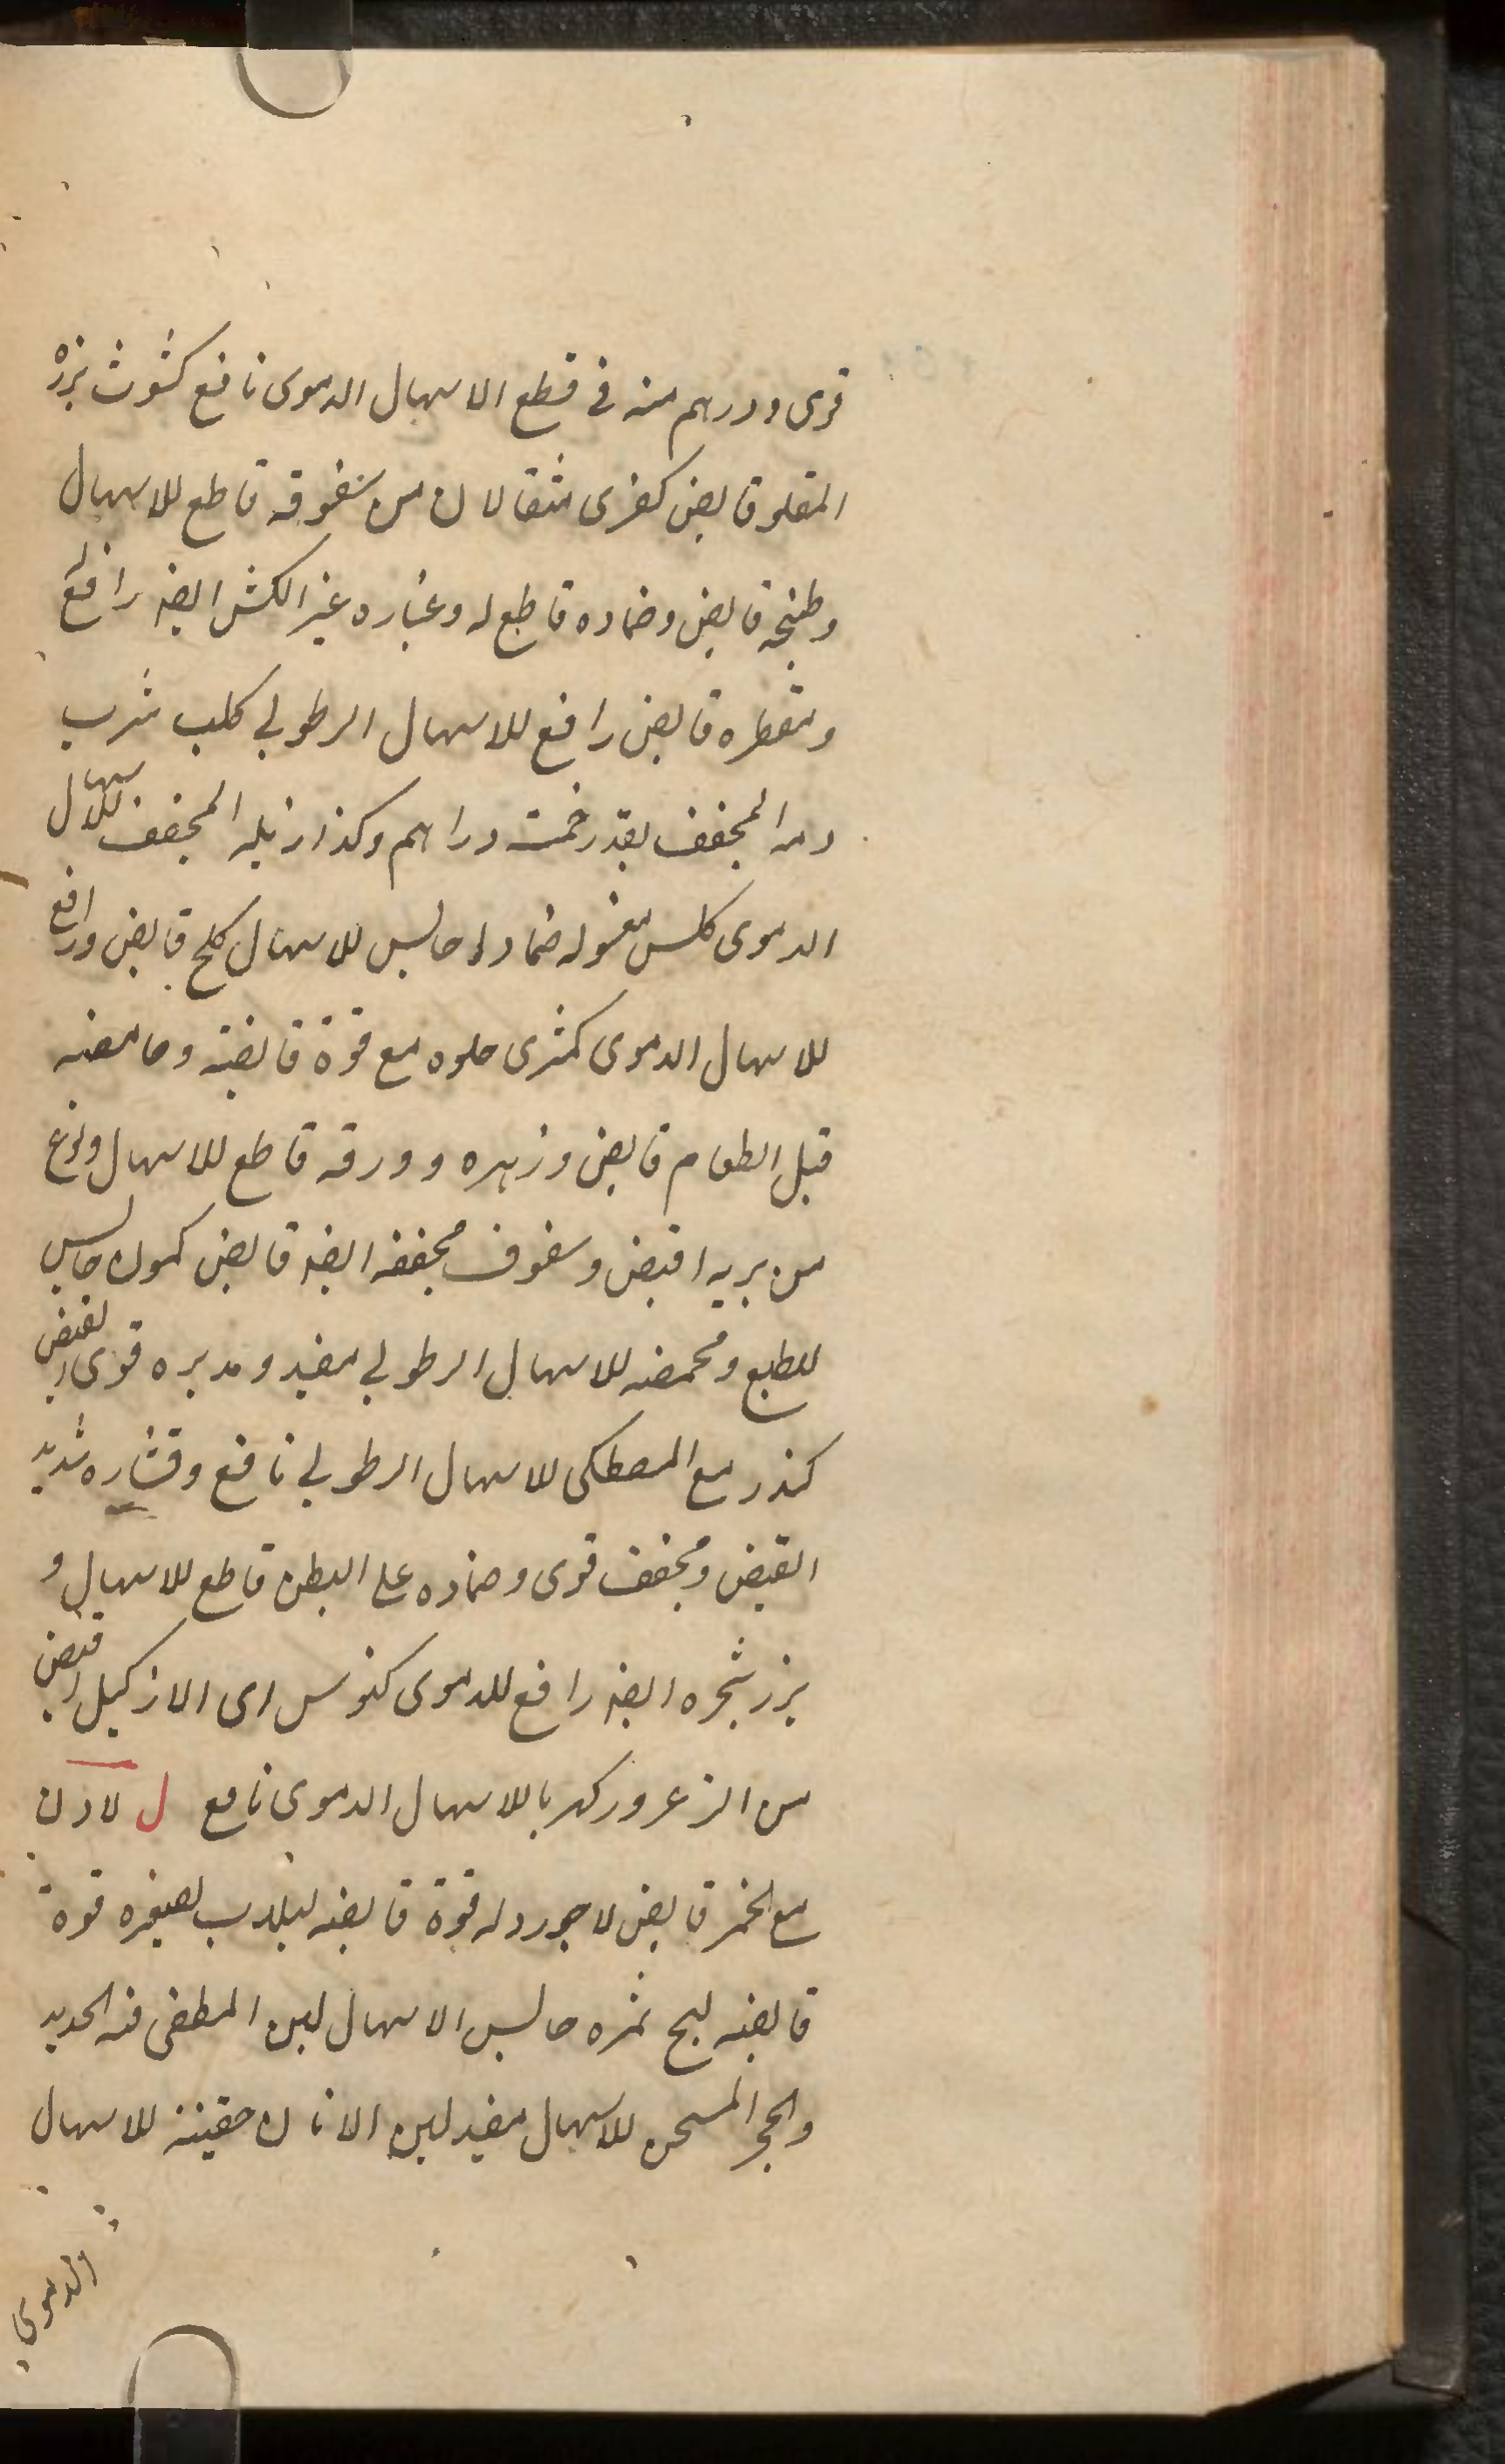 قوى ودرهم منه فى قطع الاسهال الدموى نافع كشوث بزره
المقلو قابض كفرى مثقالان من سفوفه قاطع للاسهال
وطبخه قابض وضماده قاطع له وغباره غير الكش ايضه رافع
ومتقطره قابض رافع للاسهال الرطوبى كلب شرب
دمه المجفف بقدر خمسة دراهم وكذا زبله المجفف للاسهال
الدموى كلس مغسوله ضمادا حابس للاسهال كلخ قابض ورافع
للاسهال الدموى كمثرى حلوه مع قوة قابضة وحامضه
قبل الطعام قابض وزهره وورقه قاطع للاسهال ونوع
من بريه اقبض وسفوف مجففه ايضه قابض كمون حابس
للطبع ومحمضه للاسهال الرطوبى مفيد ومدبره قوى القبض
كندر مع المصطكى للاسهال الرطوبى نافع وقشاره شديد
القبض ومجفف قوى وضماده على البطن قاطع للاسهال و
بزر شجره ايضه رافع للدموى كنوس اى الازكيل اقبض
من الزعرور كهربا للاسهال الدموى نافع ل لادن
مع الخمر قابض لاجورد له قوة قابضه لبلاب لصغيره قوة
قابضه لبخ ثمره حابس الاسهال لبن المطفى فيه الحديد
والحجر المسخن للاسهال مفيد لبن الاتان حقنة للاسهال
الدموى